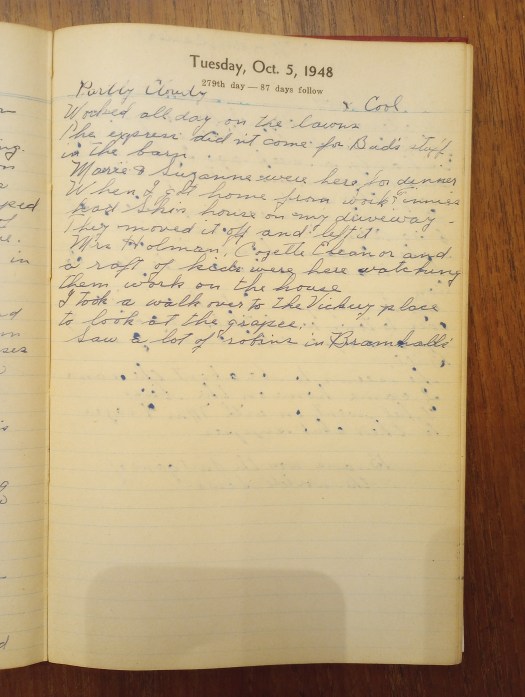 Tuesday, Oct. 5, 1948
279th day — 87 days follow
Partly Cloudy & Cool.
Worked all day on the lawns
The express did'nt come for Bud's stuff
in the barn.
Marie & Suzanne were here for dinner
When I got home from work
had house on my driveway -
They moved it off and left it
Mrs Holman, Cozette Eleanor and
a raft of kids were here watching
them works on the house
I took a walk over to the Vickery place
to look at the grapes.
Saw a lot of robins in Bramhall's